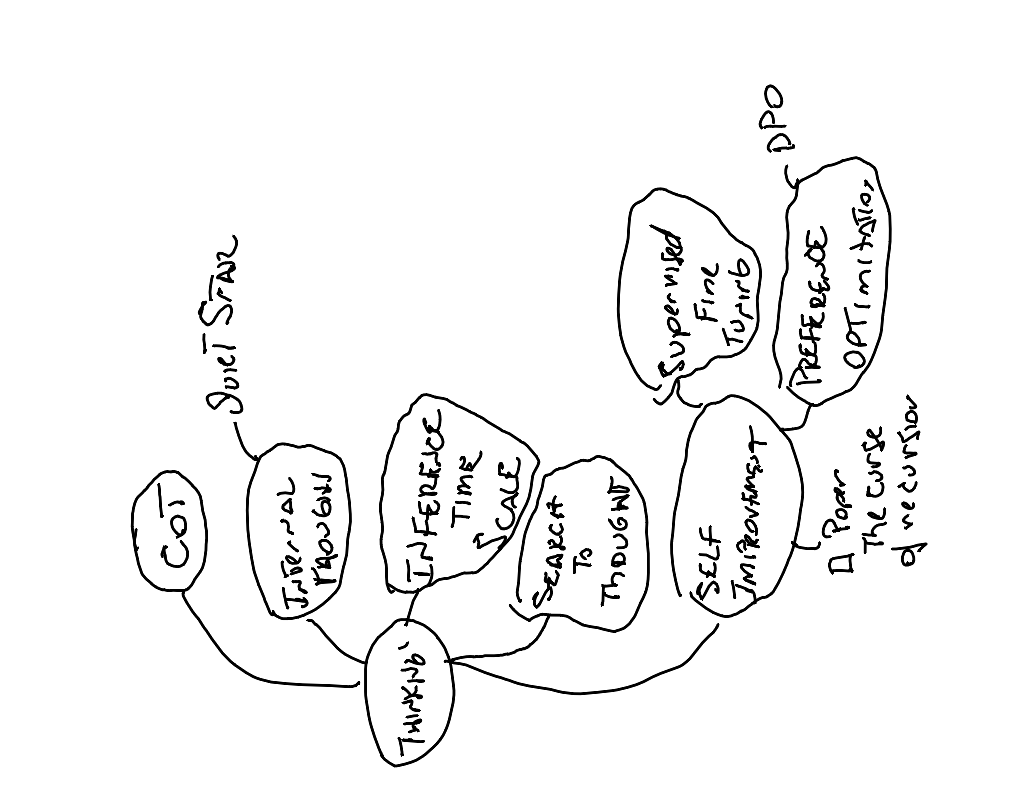 THINKNG
COT
INTERNAL
THOUGHT
QUIET STAR
INFERENCE
TIME
SCALE
SEARCH
TO
THOUGHT
SELF
IMPROVEMENT
Supervised
Fine
Tuning
PREFERENCE
OPTimitatio,
DPO
Paper
The curse
of recursion